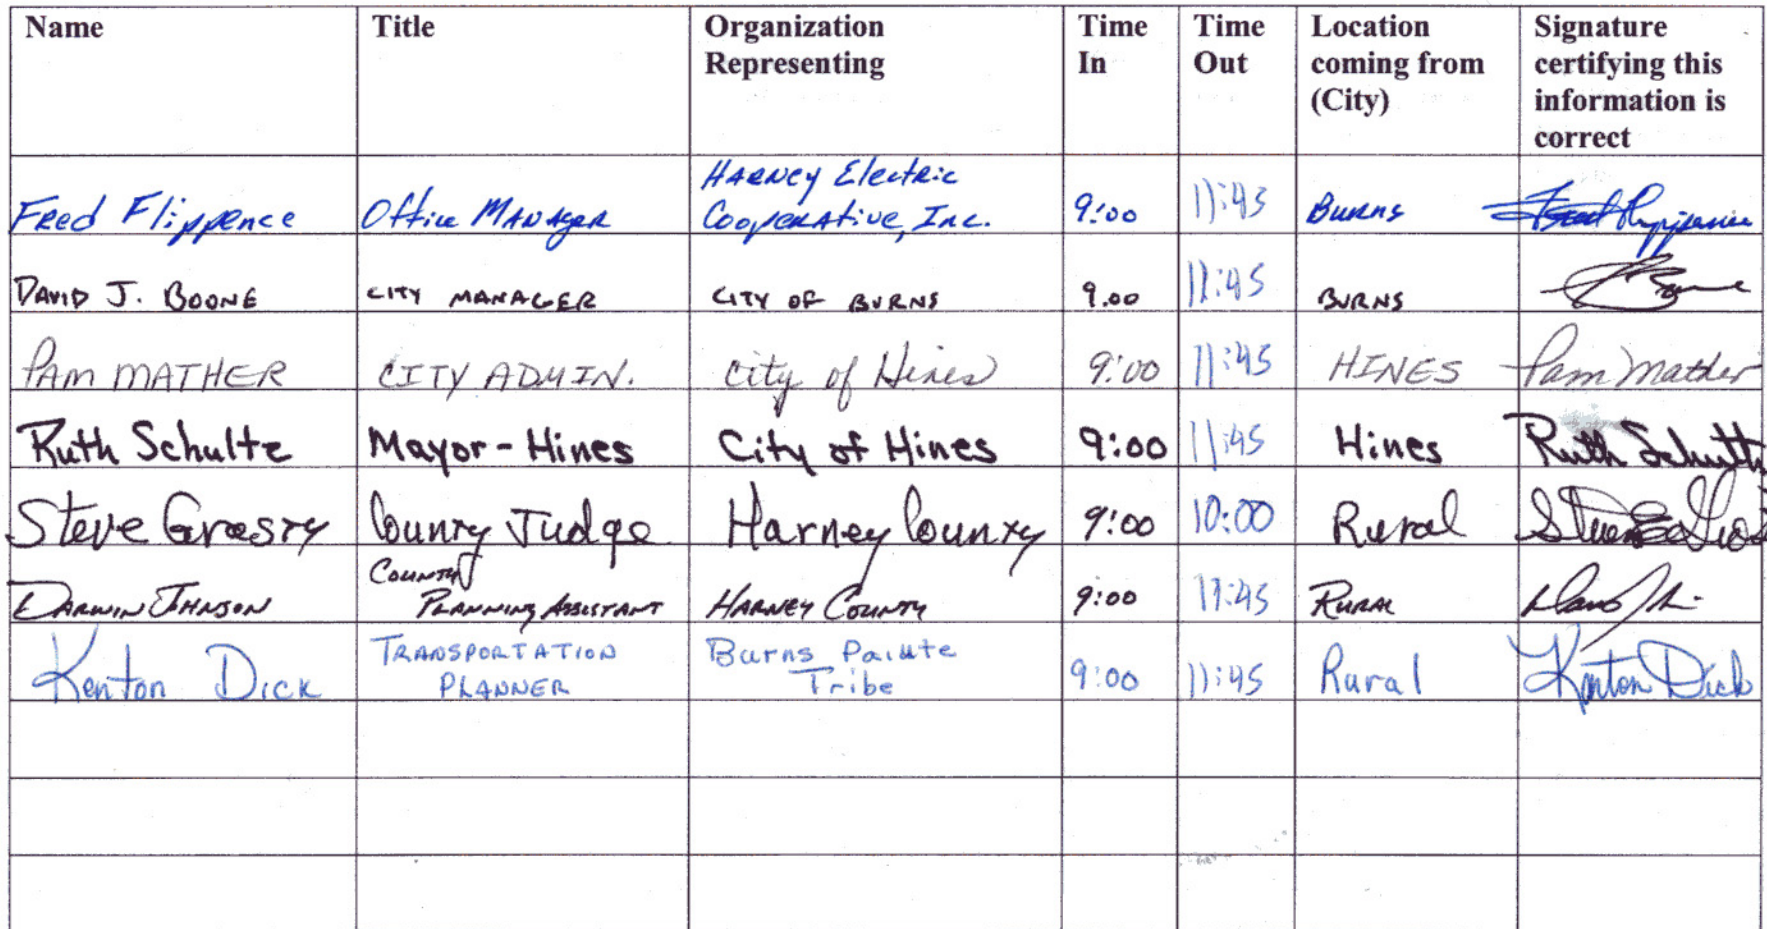 Name Title Organization Representing Time In Time Out Location coming from (City) Signature certifying this information is correct
Fred Flippence Office Manager Harney Electric Cooperative, Inc. 9:00 11:45 Burns Fred Flippence
DAVID J. BOONE CITY MANAGER CITY OF BURNS 9.00 11:45 BURNS
PAM MATHER CITY ADMIN. City of Hines 9:00 11:45 HINES Pam Mather
Ruth Schultz Mayor-Hines City of Hines 9:00 11:45 Hines Ruth Schultz
Steve Grasty County Judge Harney County 9:00 10:00 Rural
DARWIN JOHNSON COUNTY PLANNING ASSISTANT HARNEY COUNTY 9:00 11:45 RURAL
Kenton Dick TRANSPORTATION PLANNER Burns Paiute Tribe 9:00 11:45 Rural Kenton Dick